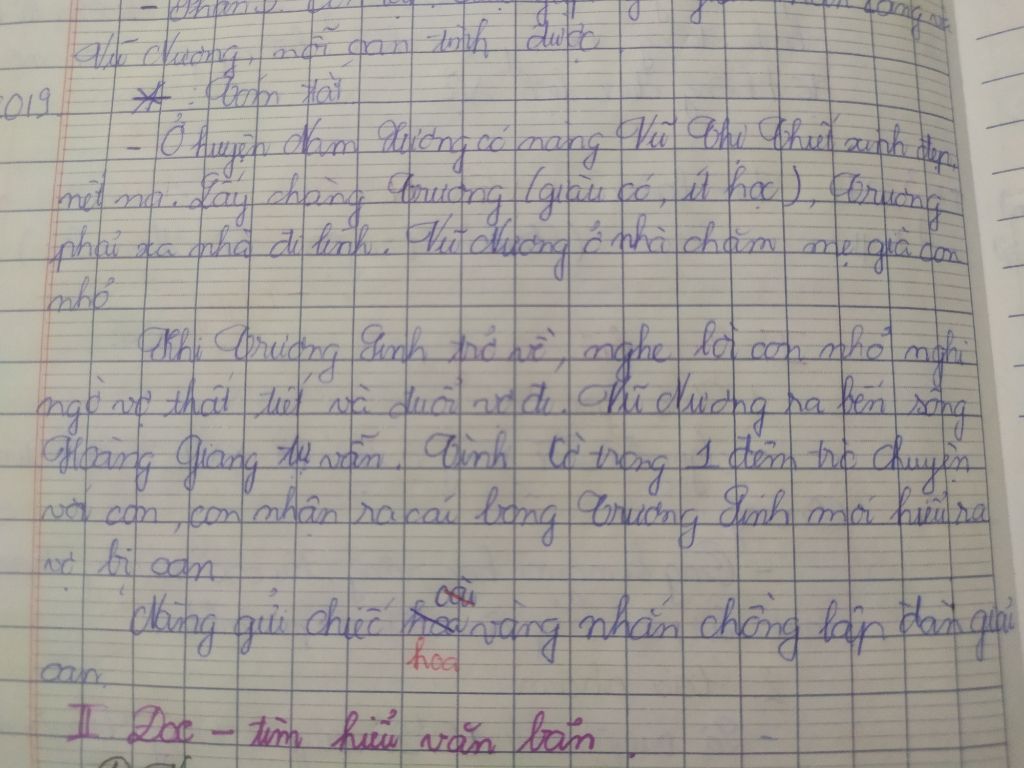 Vũ Nương, mỗi oan tình được
2019
* Tóm tắt
- Ở huyện Nam Xương có nàng Vũ Thị Thiết xinh đẹp,
nết na. Lấy chàng Trương (giàu có, ít học), Trương
phải xa nhà đi lính. Vũ Nương ở nhà chăm mẹ già con
nhỏ
Khi Trương Sinh trở về, nghe lời con nhỏ nghi
ngờ vợ thất tiết và đuổi vợ đi. Vũ Nương ra bến sông
Hoàng Giang tự vẫn. Tình cờ trong 1 đêm trò chuyện
với con, con nhận ra cái bóng Trương Sinh mới hiểu ra
vợ bị oan
Nàng gửi chiếc vàng nhắn chồng lập đàn giải
hoa
oan
II Đọc - tìm hiểu văn bản